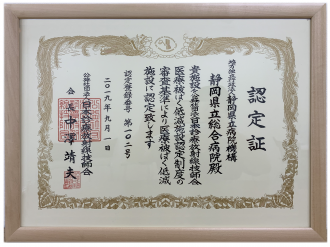 認定証
地方独立行政法人静岡県立病院機構
静岡県立総合病院殿
貴施設を公益社団法人日本診療放射線技師会
医療被ばく低減施設認定制度の
審査基準により医療被ばく低減
施設に認定致します
認定登録番号 第一〇二号
二〇一九年九月一日
公益社団法人日本診療放射線技師会
会長 中澤靖夫